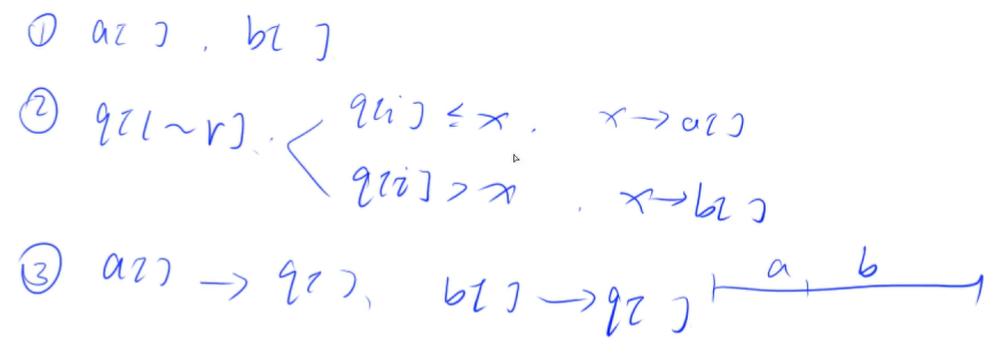 ① a[ ] . b[ ]
② q[l~r] . q[i] ≤ x . x→a[ ]
q[i] > x . x→b[ ]
③ a[ ] → q[ ]、 b[ ] → q[ ] a b